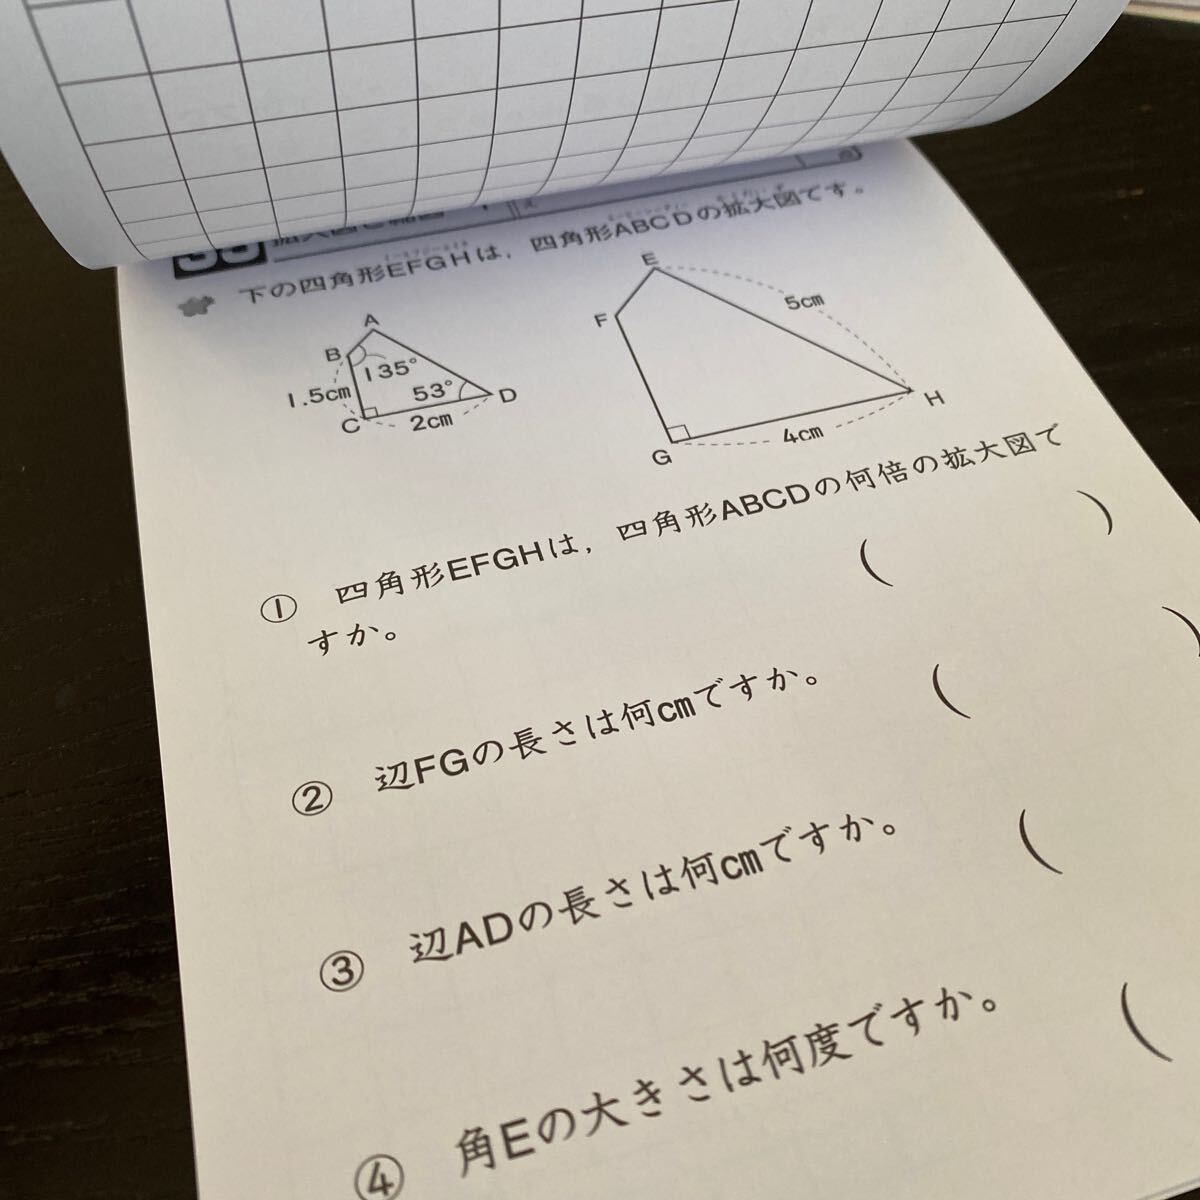 下の四角形EFGHは，四角形ABCDの拡大図です。
A
B
135°
1.5cm
53°
D
C
2cm
E
F
5cm
H
G
4cm
① 四角形EFGHは，四角形ABCDの何倍の拡大図で
すか。
( )
② 辺FGの長さは何cmですか。 ( )
③ 辺ADの長さは何cmですか。 (
④ 角Eの大きさは何度ですか。 (